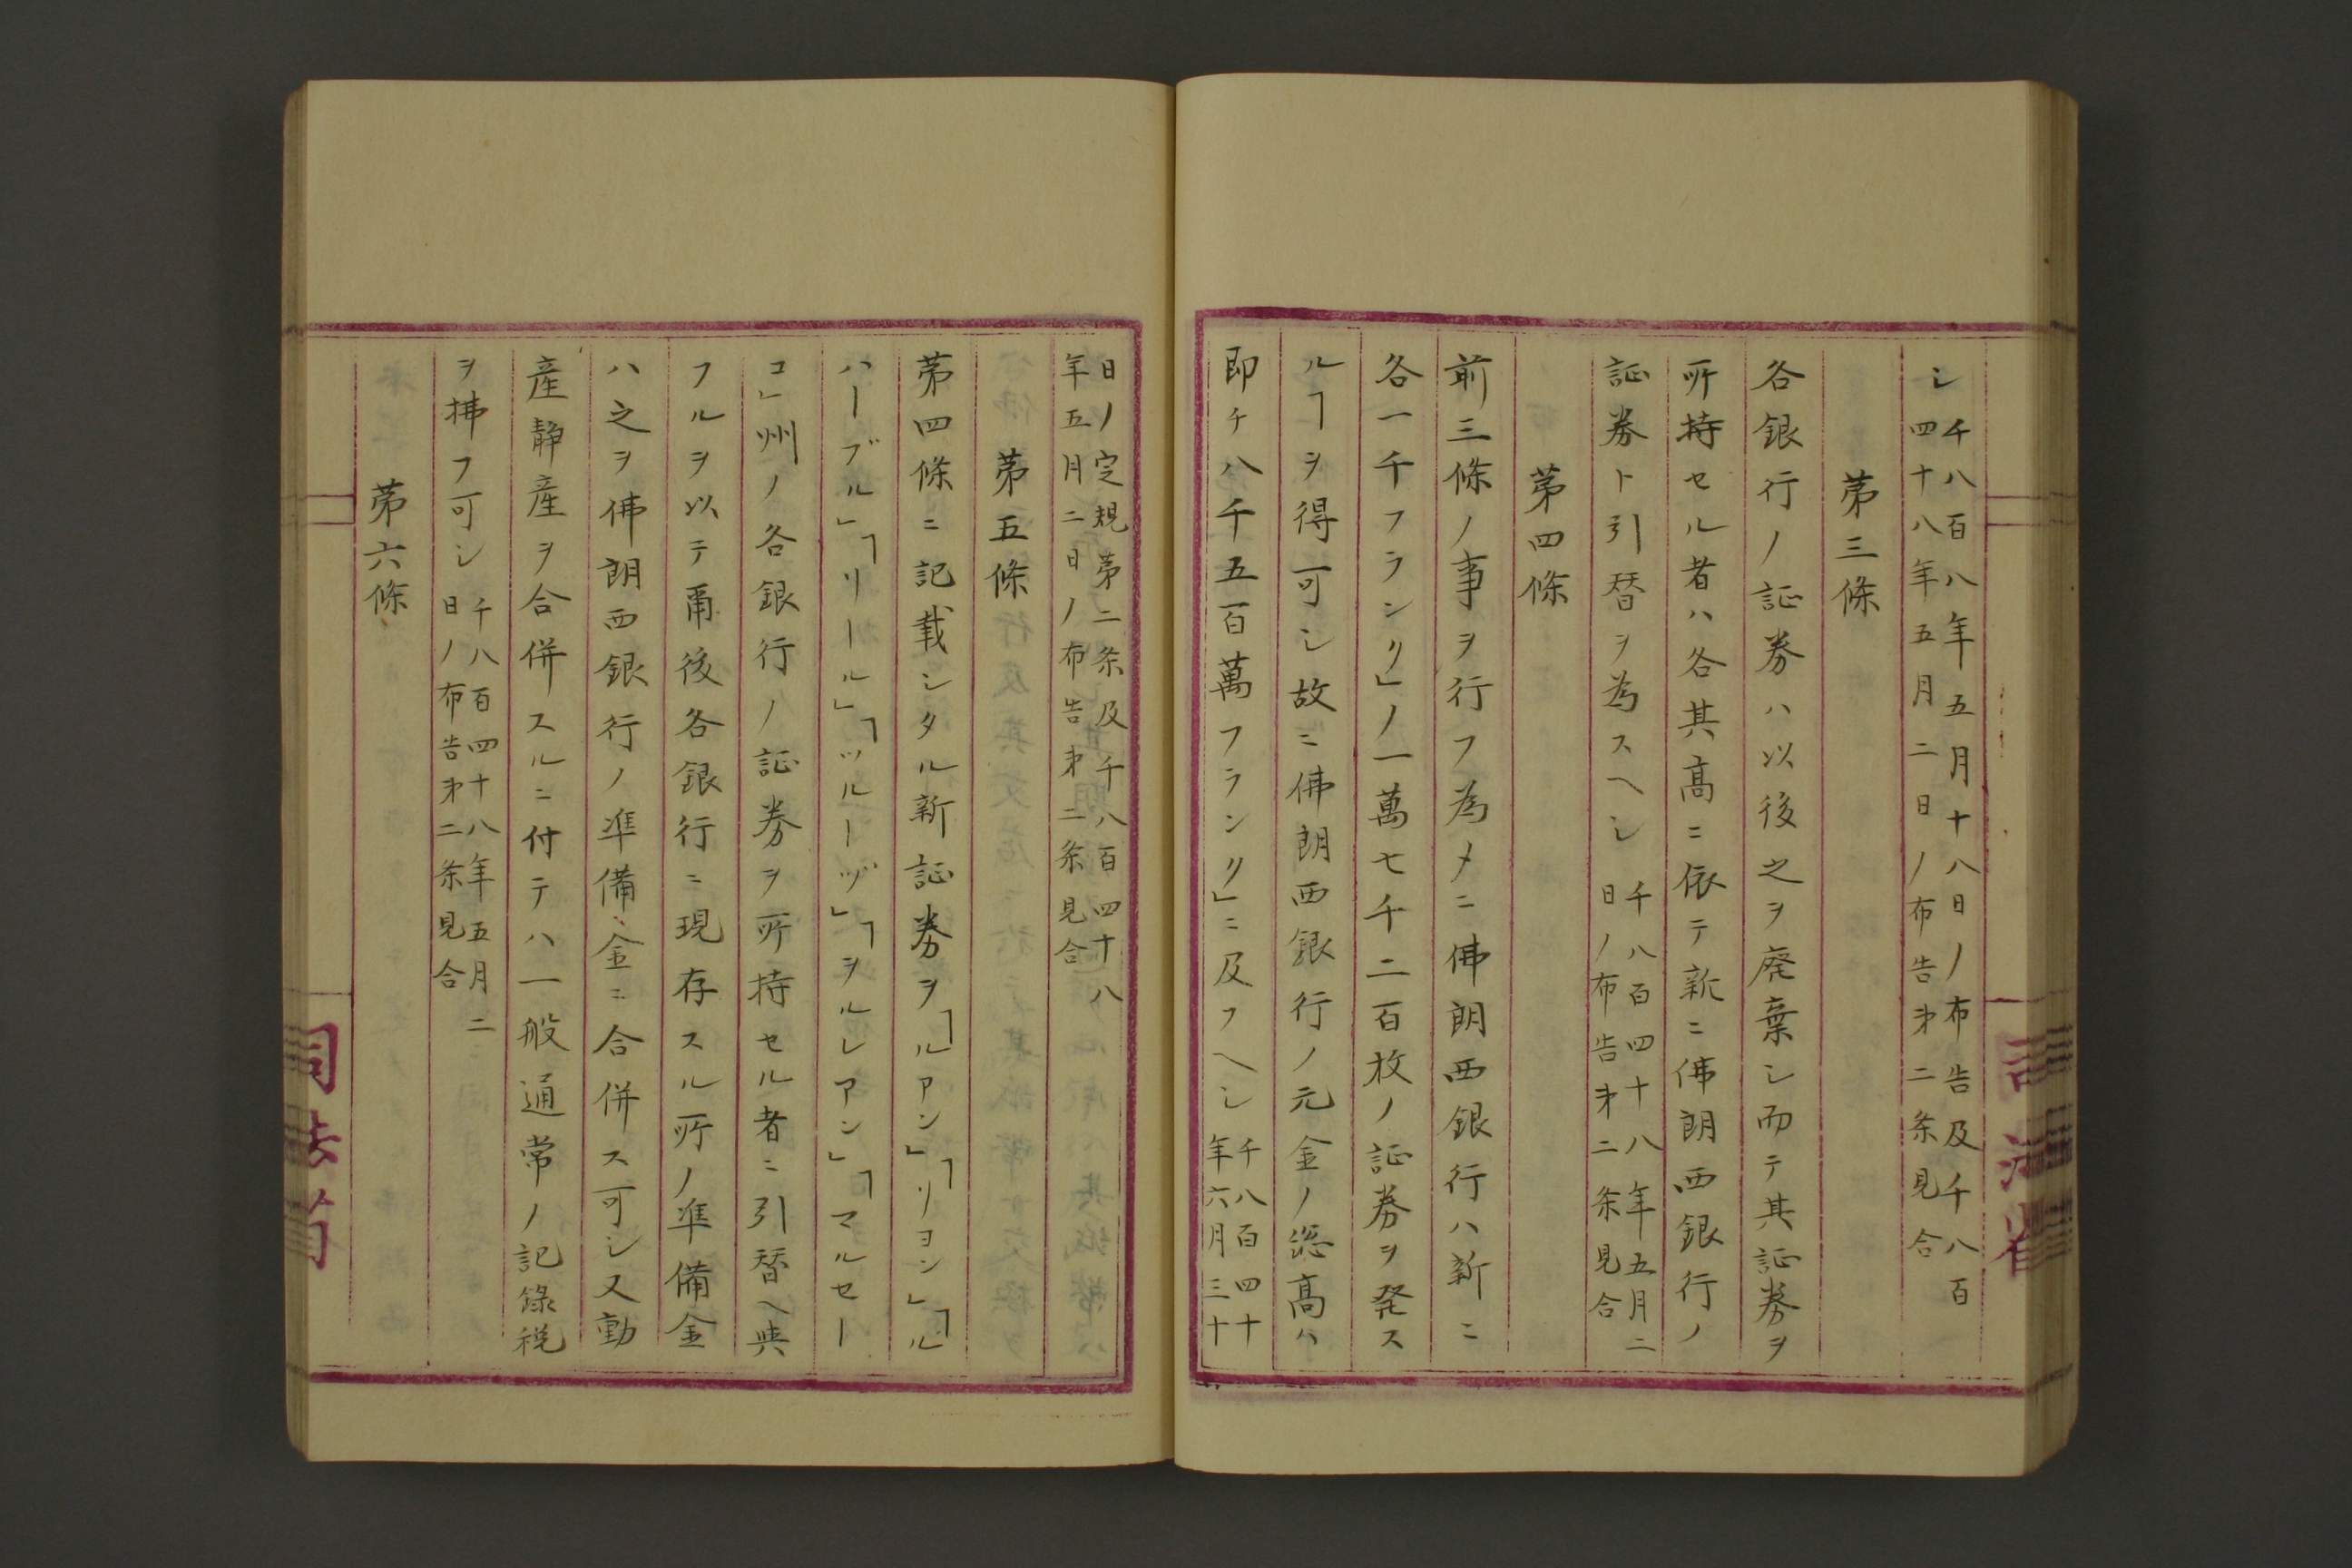 シ千八百八年五月十八日ノ布告及千八百
四十八年五月二日ノ布告第二条見合
第三條
各銀行ノ証券ハ以後之ヲ廃棄シ而テ其証券ヲ
所持セル者ハ各其高ニ依テ新ニ佛朗西銀行ノ
証券ト引替ヲ為スヘシ千八百四十八年五月二
日ノ布告第二条見合
第四條
前三條ノ事ヲ行フ為メニ佛朗西銀行ハ新ニ
各一千フランク」ノ一萬七千二百枚ノ証券ヲ発ス
ルヿヲ得可シ故ニ佛朗西銀行ノ元金ノ総高ハ
即チ八千五百萬フランク」ニ及フヘシ千八百四十
年六月三十
日ノ定規第二条及千八百四十八
年五月二日ノ布告第二条見合
第五條
第四條ニ記載シタル新証券ヲ「ルアン」「リヨン」「ル
ハーブル」「リール」「ツルーヅ」「ヲルレアン」「マルセー
コ」州ノ各銀行ノ証券ヲ所持セル者ニ引替ヘ與
フルヲ以テ爾後各銀行ニ現存スル所ノ準備金
ハ之ヲ佛朗西銀行ノ準備金ニ合併ス可シ又動
産静産ヲ合併スルニ付テハ一般通常ノ記録税
ヲ拂フ可シ千八百四十八年五月二
日ノ布告第二条見合
第六條
司法省